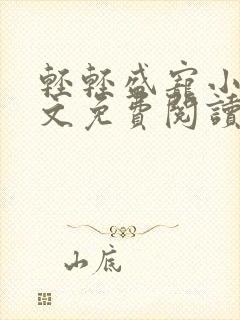 輕輕盛寵小
文免費閱讀
山底